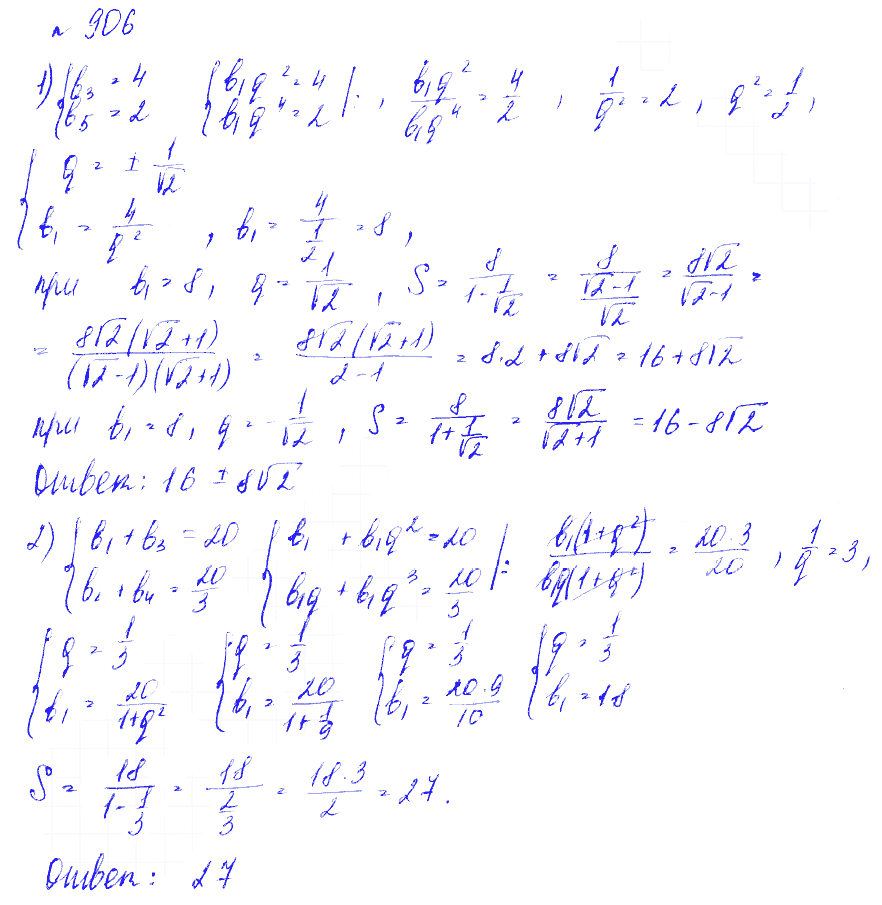 № 906
1) { b₃ = 4 b₅ = 2 { b₁q² = 4 b₁q⁴ = 2 | : , b₁q²/b₁q⁴ = 4/2 , 1/q² = 2 , q² = 1/2 ,
{ q = ± 1/√2
b₁ = 4/q² , b₁ = 4/(1/2) = 8 ,
при b₁ = 8 , q = 1/√2 , S = 8/(1 - 1/√2) = 8/((√2 - 1)/√2) = 8√2/(√2 - 1) =
= 8√2(√2 + 1)/((√2 - 1)(√2 + 1)) = 8√2(√2 + 1)/(2 - 1) = 8·2 + 8√2 = 16 + 8√2
при b₁ = 8 , q = -1/√2 , S = 8/(1 + 1/√2) = 8√2/(√2 + 1) = 16 - 8√2
Ответ: 16 ± 8√2
2) { b₁ + b₃ = 20 b₂ + b₄ = 20/3 { b₁ + b₁q² = 20 b₁q + b₁q³ = 20/3 | : b₁(1 + q²)/b₁q(1 + q²) = 20·3/20 , 1/q = 3 ,
{ q = 1/3 b₁ = 20/(1 + q²) { q = 1/3 b₁ = 20/(1 + 1/9) { q = 1/3 b₁ = 20·9/10 { q = 1/3 b₁ = 18
S = 18/(1 - 1/3) = 18/(2/3) = 18·3/2 = 27.
Ответ: 27